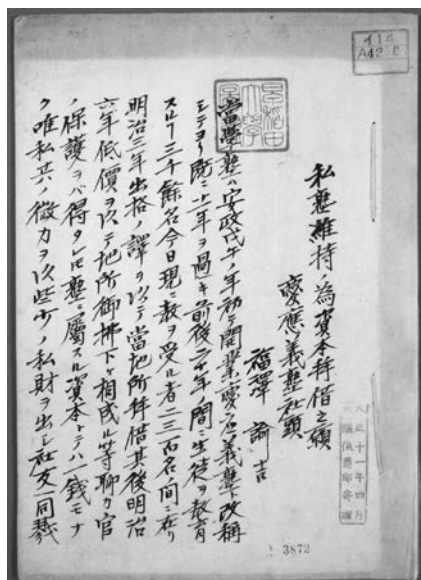 私塾維持ノ為資本拝借之願
慶應義塾社頭
福澤諭吉
當學塾ハ安政戊午ノ年初テ開業慶應義塾ト改称
シテヨリ既ニ十一年ヲ過キ前後二十年ノ間ニ生徒ヲ教育
スルヿ三千餘名今日現ニ教ヲ受ル者二三百名ノ間ニ在リ
明治三年出格ノ譯ヲ以テ當地所拝借其後明治
六年低價ヲ以テ地所御拂下ケ相成ル等聊カ官
ノ保護ヲバ得タレ𪜈塾ニ屬スル資本トテハ一銭モナ
ク唯私共ノ微力ヲ以些少ノ私財ヲ出シ社友一同義
イ14
A4218
早稲田大学
3872